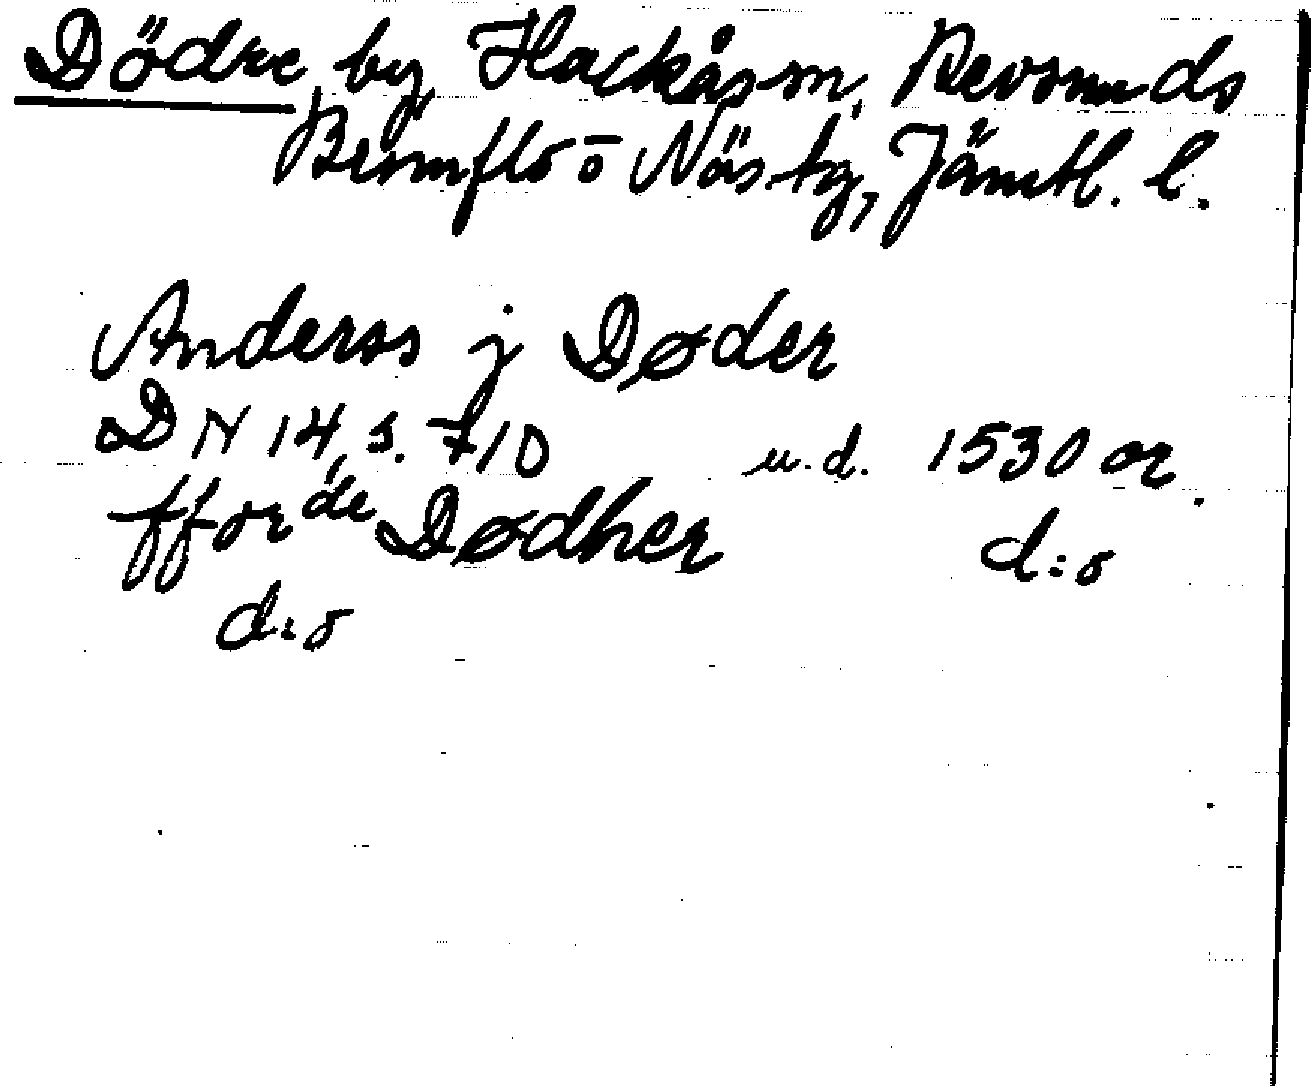 Dödre by, Hackås sn, Revsunds
Brunflo o Näs tg, Jämtl. l.
Anderss j Døder
DN 14, s. 710 u. d. 1530 or.
fforde Dødher d:o
d:o